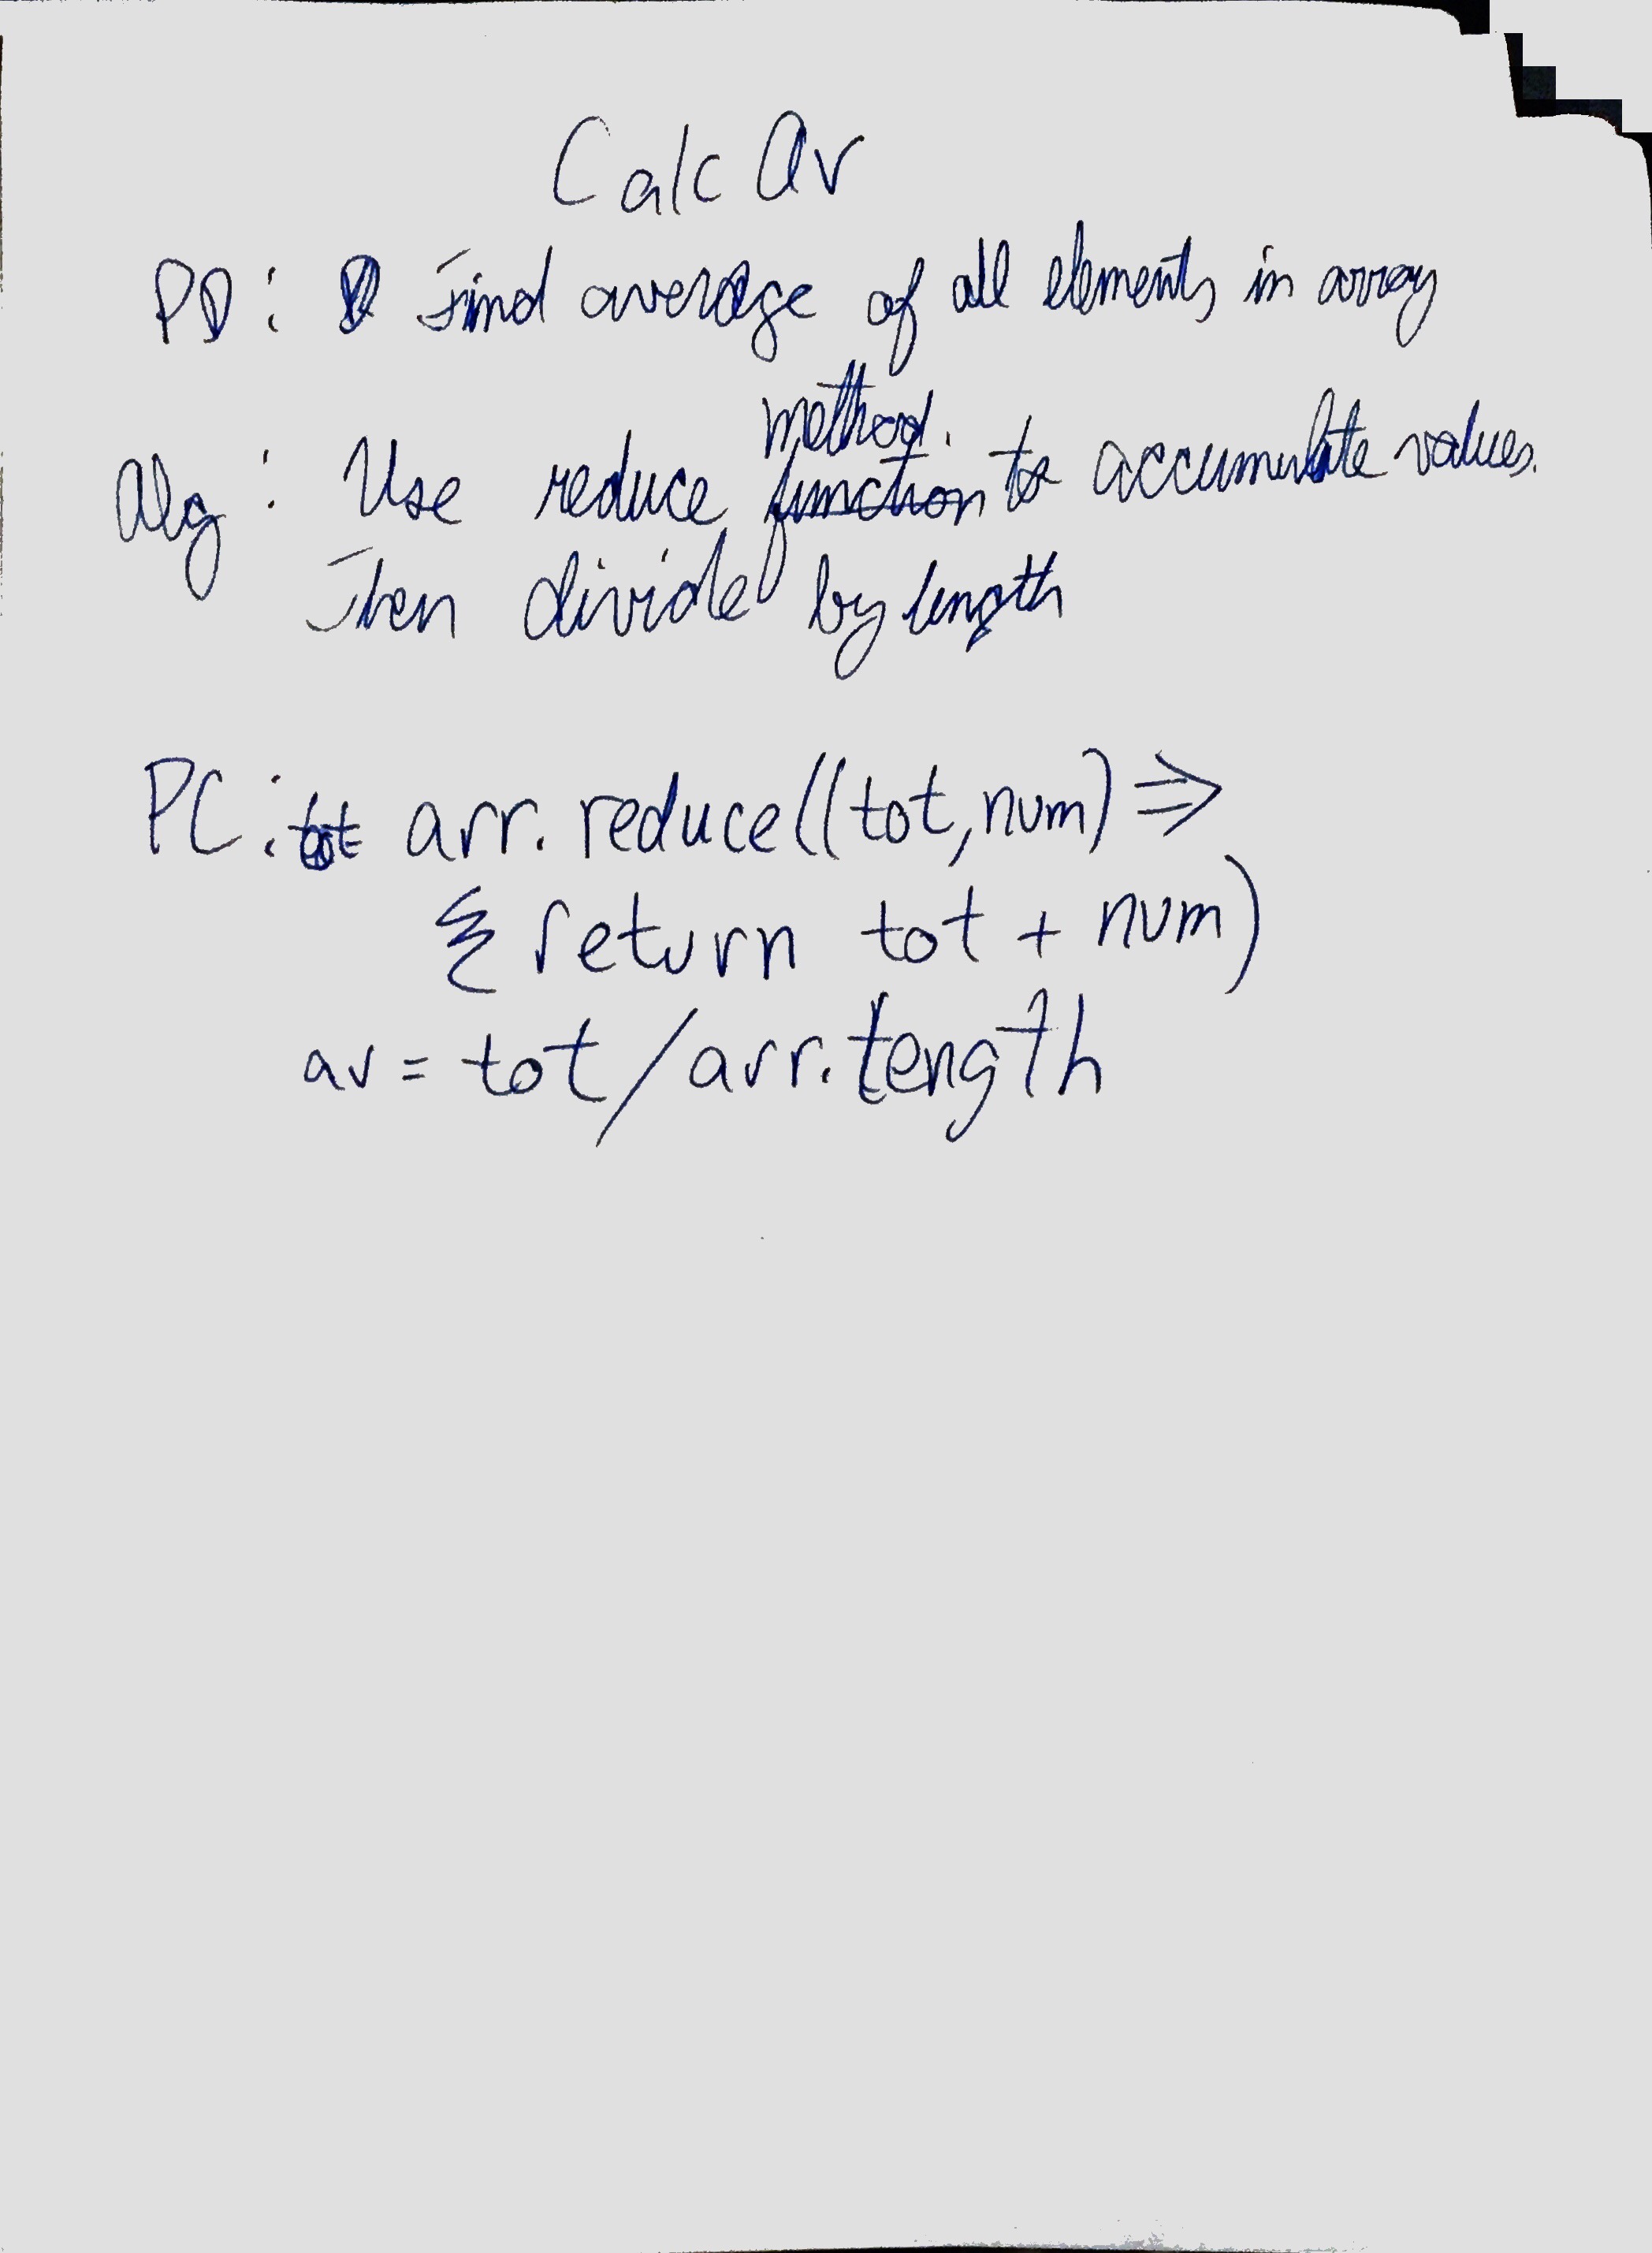 Calc Av
PD: Find average of all elements in array
method.
Alg: Use reduce function to accumulate values.
Then divide by length
PC: tot arr.reduce((tot,num) =>
{ return tot + num)
av = tot/arr.length